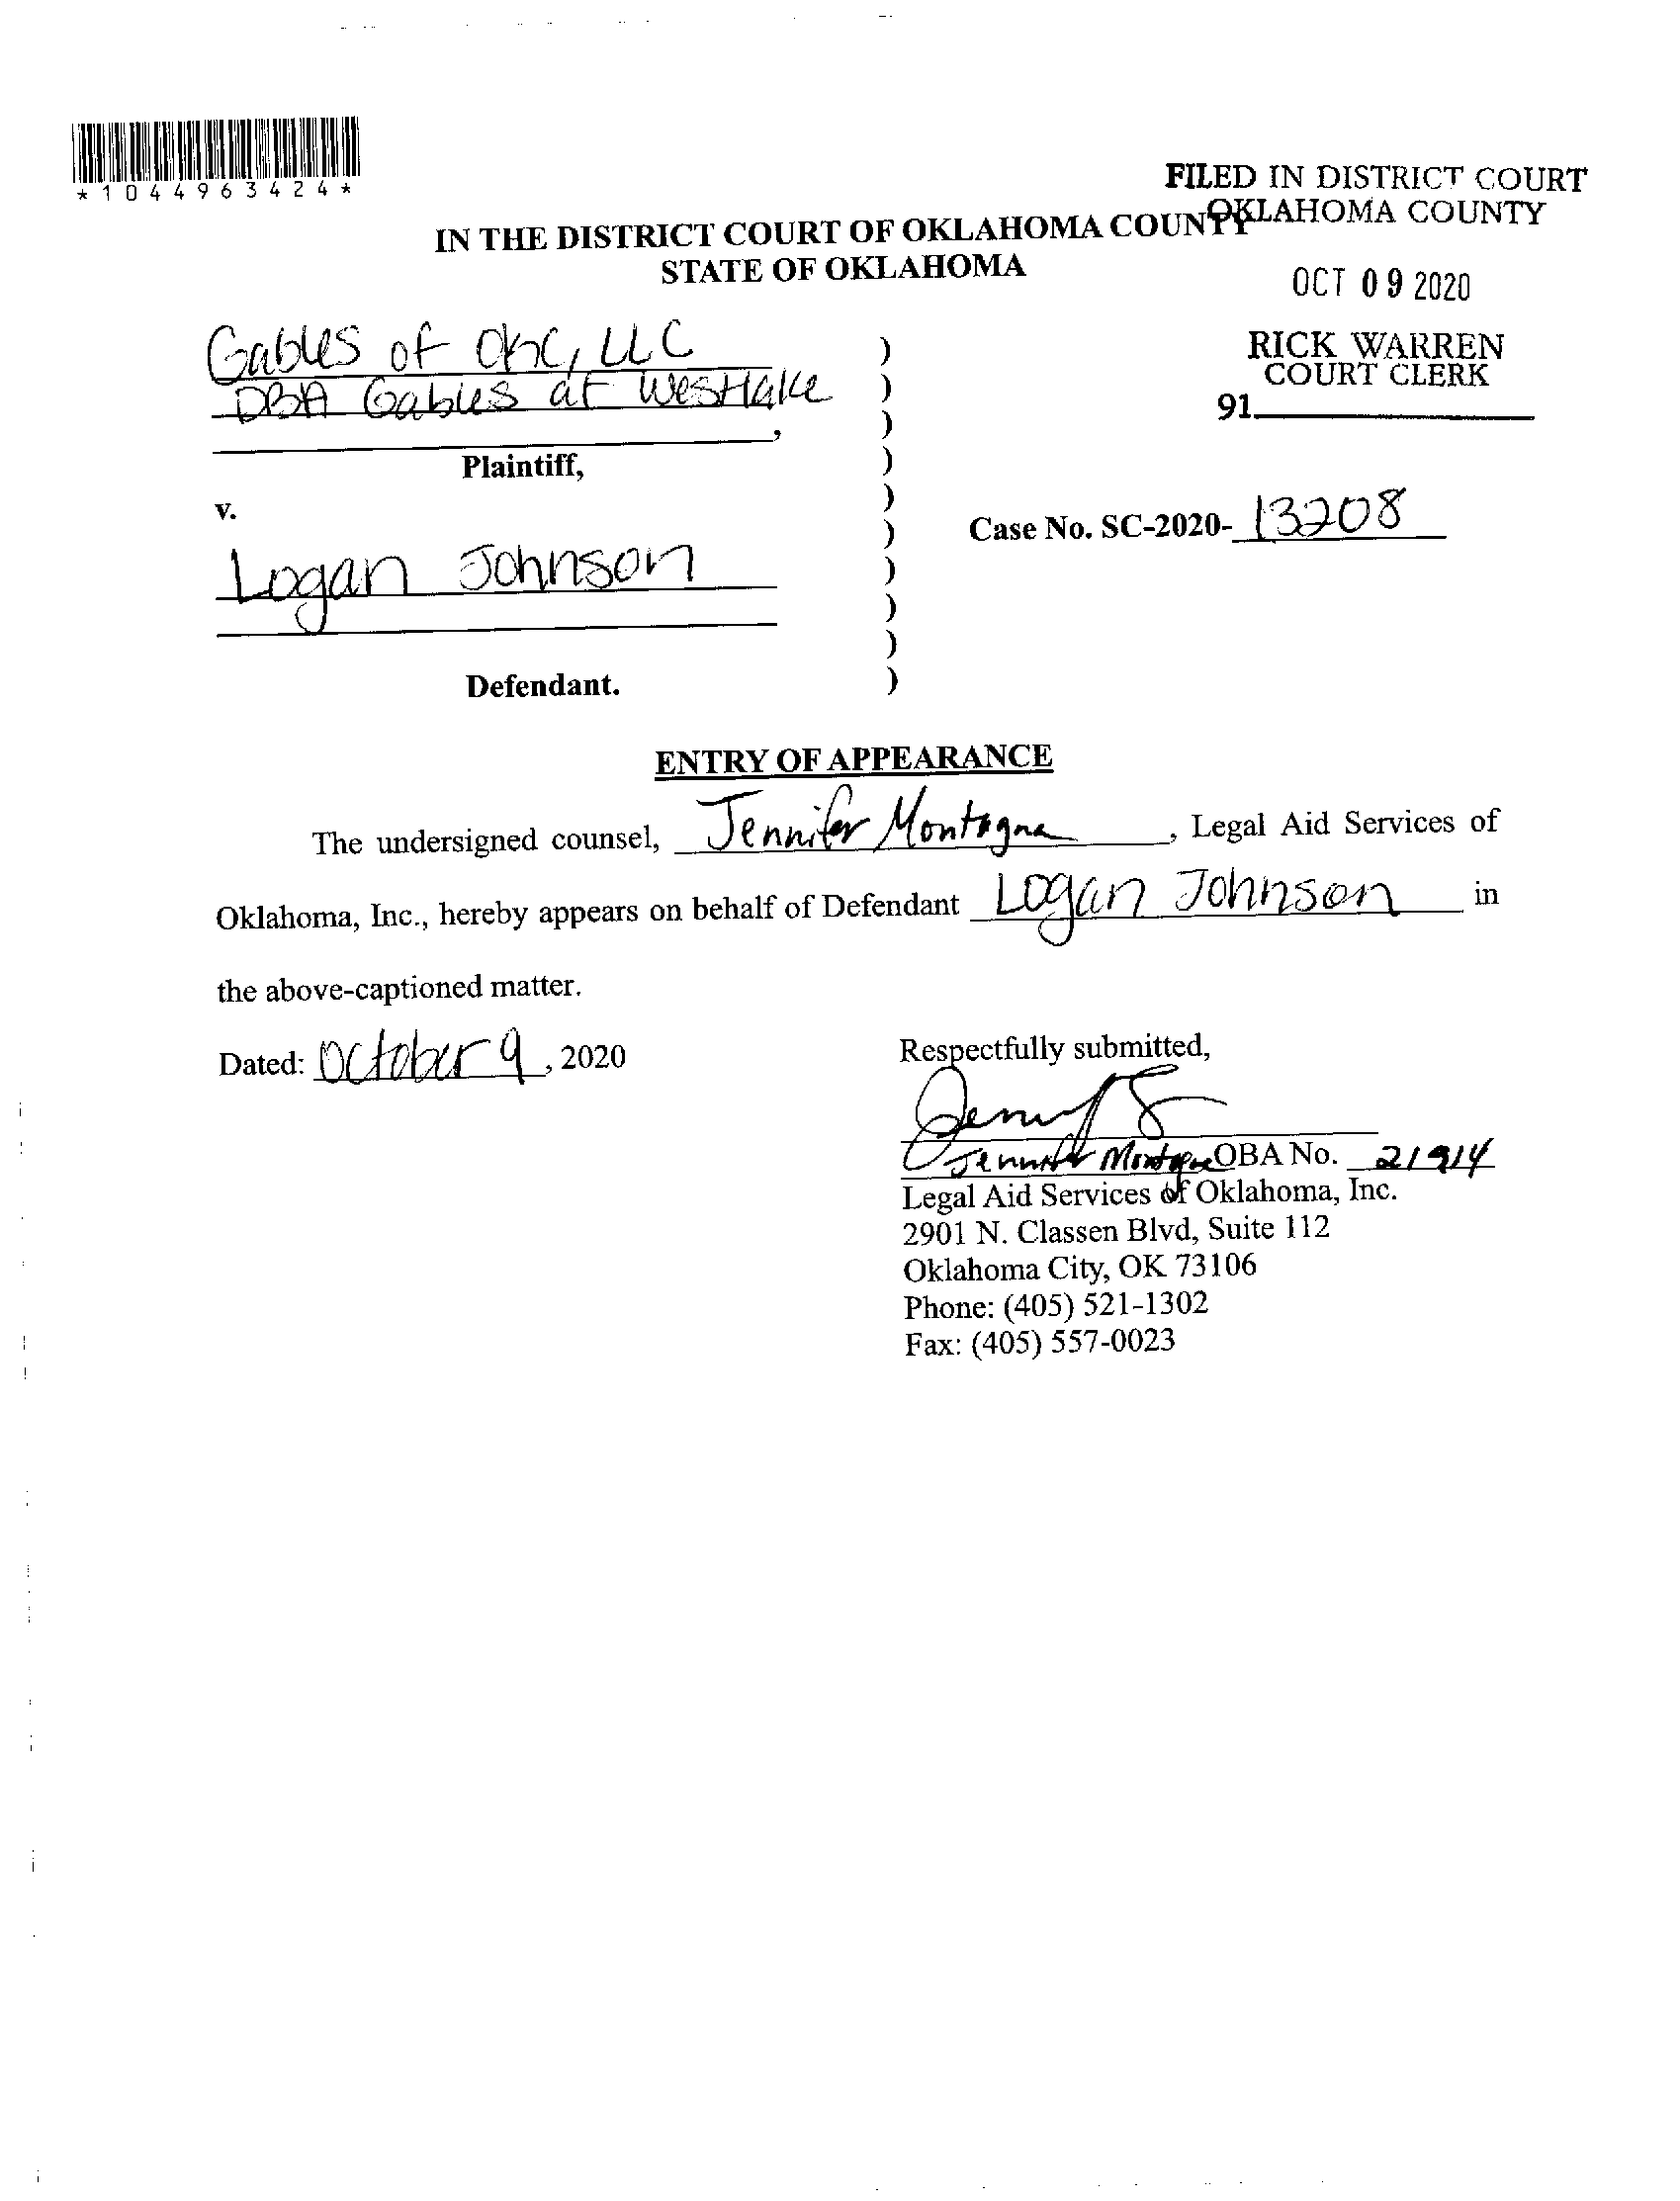 *1044963424*
FILED IN DISTRICT COURT
OKLAHOMA COUNTY
IN THE DISTRICT COURT OF OKLAHOMA COUNTY
STATE OF OKLAHOMA
OCT 09 2020
RICK WARREN
COURT CLERK
91
Gables of OKC, LLC )
DBA Gables at Westlake )
, )
Plaintiff, )
v. )
Case No. SC-2020- 13208 )
Logan Johnson )
)
)
Defendant. )
ENTRY OF APPEARANCE
The undersigned counsel, Jennifer Montagna, Legal Aid Services of
Oklahoma, Inc., hereby appears on behalf of Defendant Logan Johnson in
the above-captioned matter.
Dated: October 9, 2020
Respectfully submitted,
Jennifer Montagna OBA No. 21914
Legal Aid Services of Oklahoma, Inc.
2901 N. Classen Blvd, Suite 112
Oklahoma City, OK 73106
Phone: (405) 521-1302
Fax: (405) 557-0023